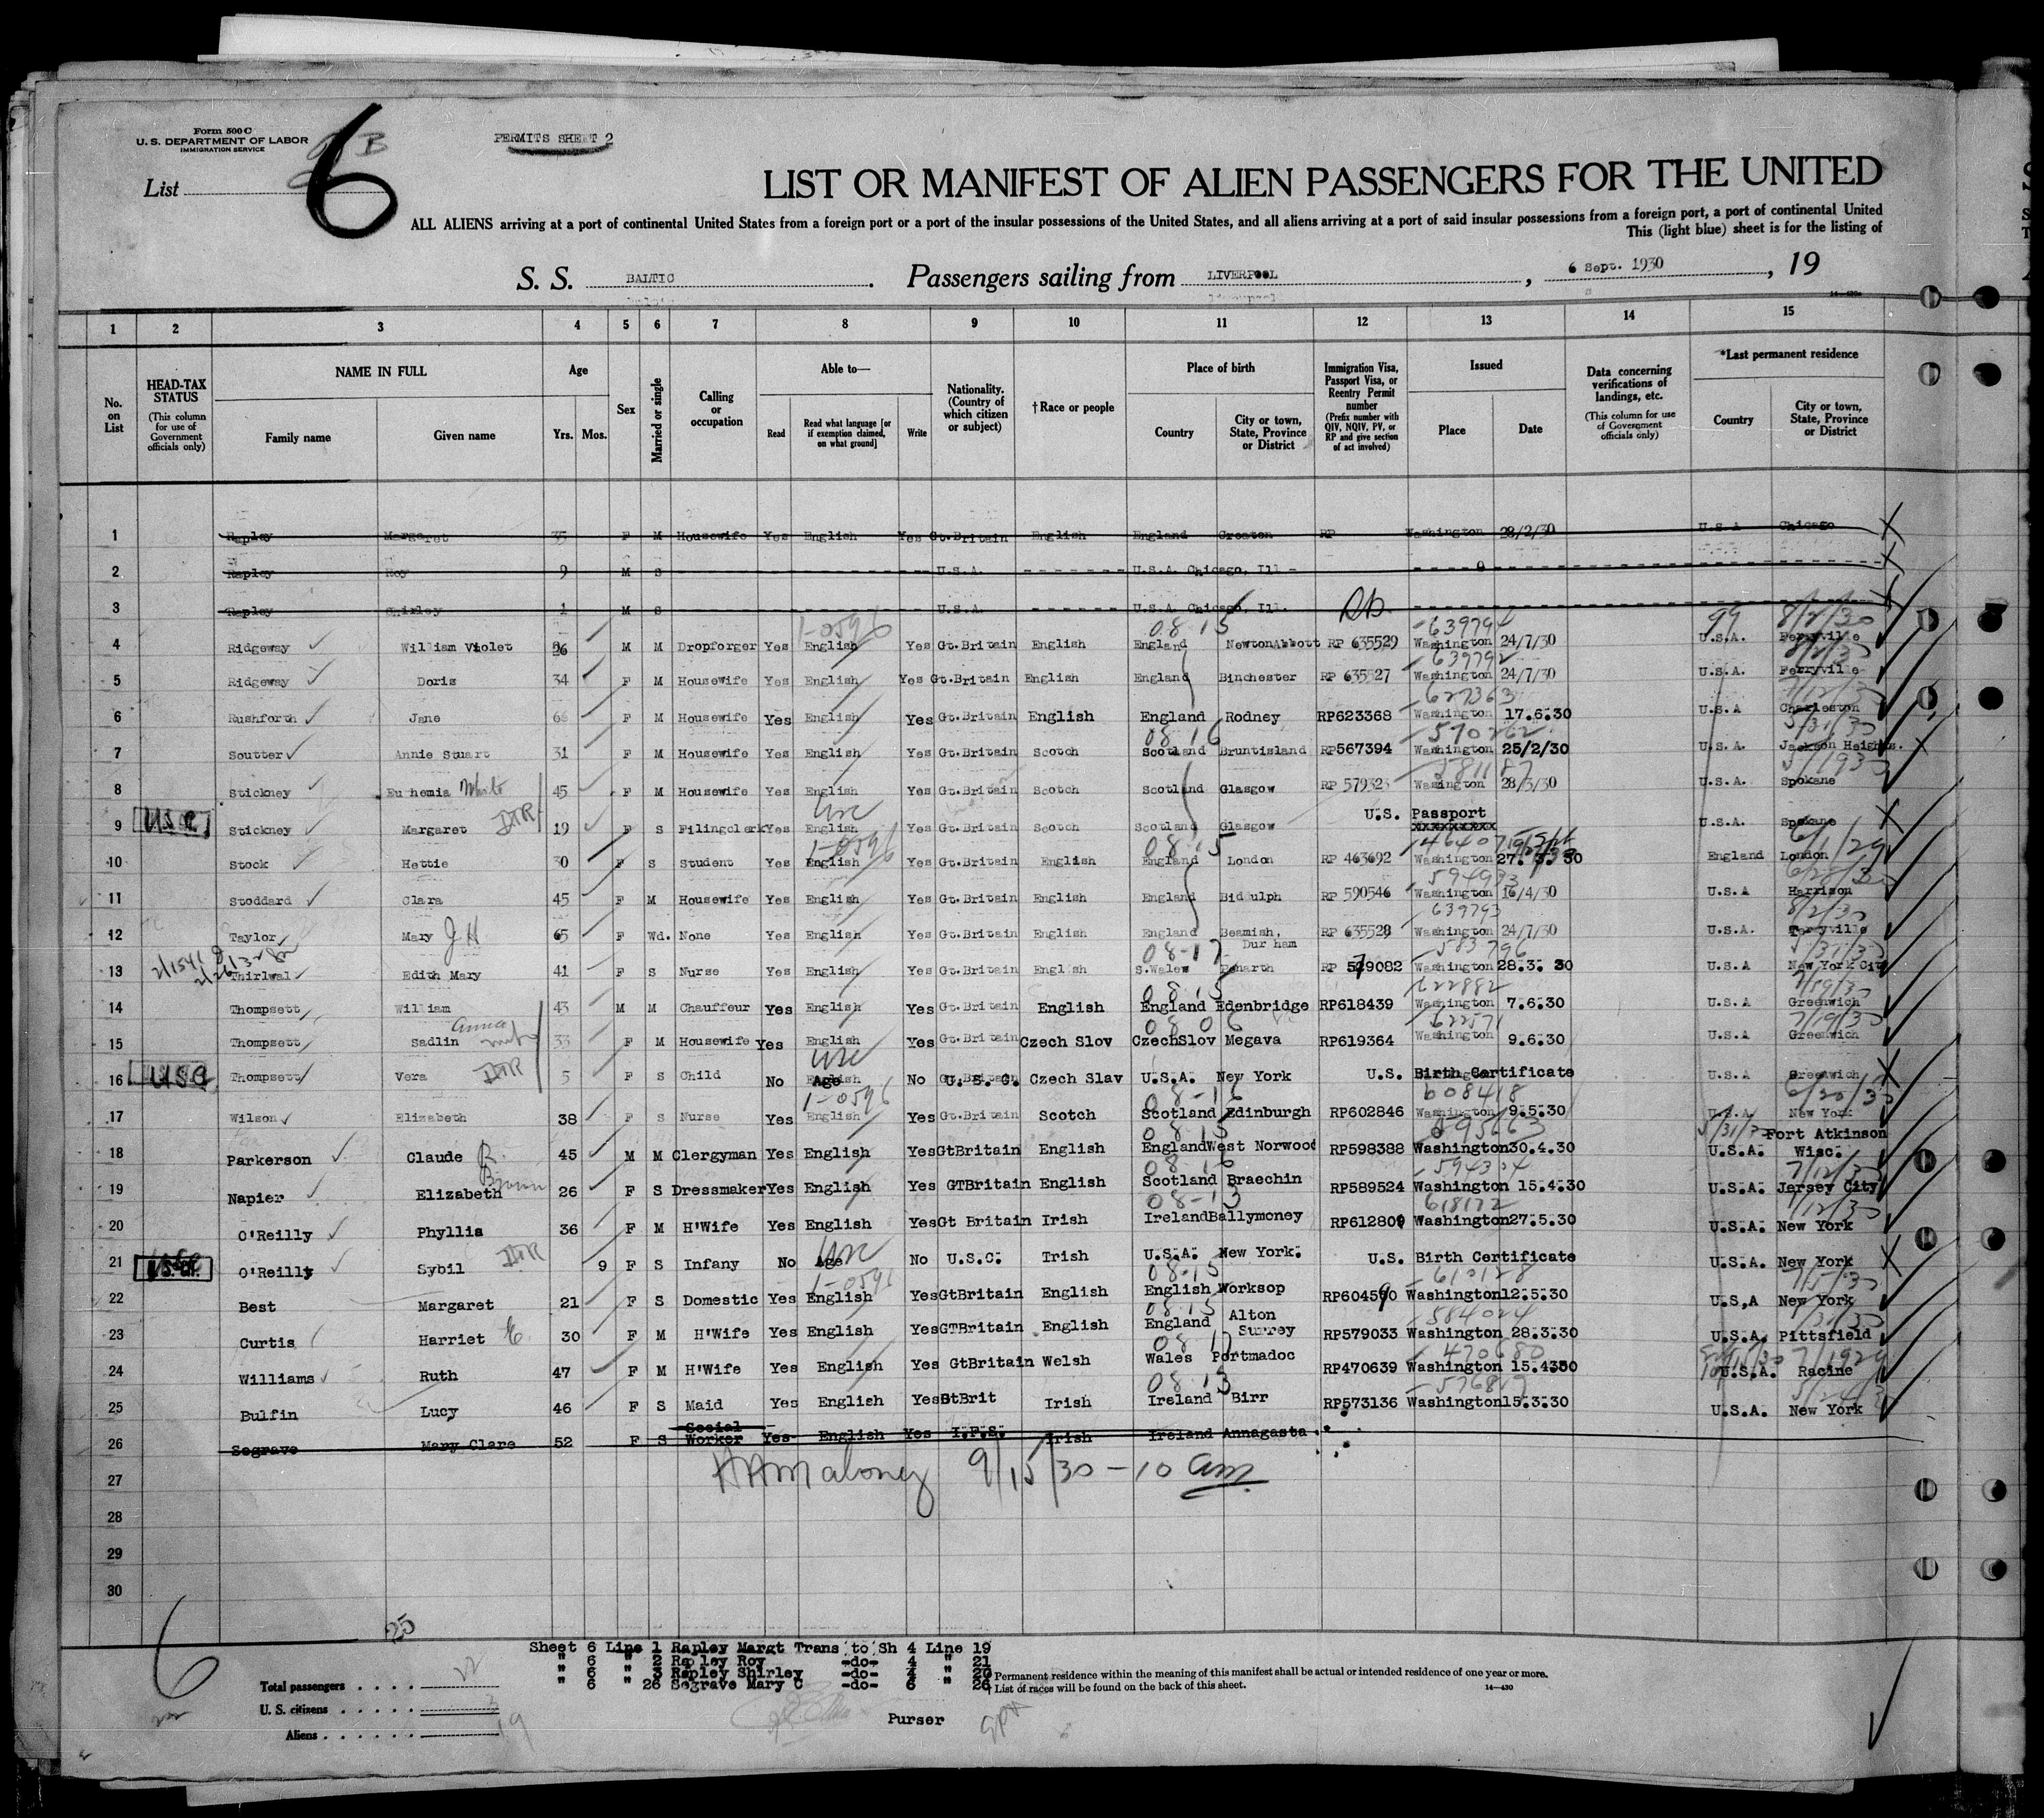 Form 500 C
U. S. DEPARTMENT OF LABOR
IMMIGRATION SERVICE
PERMITS SHEET 2
List 6
LIST OR MANIFEST OF ALIEN PASSENGERS FOR THE UNITED
ALL ALIENS arriving at a port of continental United States from a foreign port or a port of the insular possessions of the United States, and all aliens arriving at a port of said insular possessions from a foreign port, a port of continental United
This (light blue) sheet is for the listing of
S. S. BALTIC. Passengers sailing from LIVERPOOL, 6 Sept. 1930, 19
1 2 3 4 5 6 7 8 9 10 11 12 13 14 15
No. on List
HEAD-TAX STATUS (This column for use of Government officials only)
NAME IN FULL Family name Given name
Age Yrs. Mos.
Sex
Married or single
Calling or occupation
Able to— Read Read what language [or if exemption claimed, on what ground] Write
Nationality. (Country of which citizen or subject)
†Race or people
Place of birth Country City or town, State, Province or District
Immigration Visa, Passport Visa, or Reentry Permit number (Prefix number with QIV, NQIV, PV, or RP and give section of act involved)
Issued Place Date
Data concerning verifications of landings, etc. (This column for use of Government officials only)
*Last permanent residence Country City or town, State, Province or District
1 Rapley Margaret 35 F M Housewife Yes English Yes Gt.Britain English England Greaten RP Washington 28/2/30 U.S.A Chicago
2 Rapley Roy 9 M S U.S.A. U.S.A. Chicago, Ill
3 Rapley Shirley 1 M S U.S.A. U.S.A. Chicago, Ill.
1-0596 08-15 639794 99 8/2/30
4 Ridgeway William Violet 26 M M Dropforger Yes English Yes Gt.Britain English England NewtonAbbott RP 635529 Washington 24/7/30 U.S.A. Ferryville
639792 8/2/30
5 Ridgeway Doris 34 F M Housewife Yes English Yes Gt.Britain English England Binchester RP 635527 Washington 24/7/30 U.S.A. Ferryville
627363 7/12/30
6 Rushforth Jane 66 F M Housewife Yes English Yes Gt.Britain English England Rodney RP623368 Washington 17.6.30 U.S.A Charleston
08-16 570262 5/31/30
7 Soutter Annie Stuart 31 F M Housewife Yes English Yes Gt.Britain Scotch Scotland Bruntisland RP567394 Washington 25/2/30 U.S.A. Jackson Heights.
581187 5/1930
8 Stickney Euphemia White 45 F M Housewife Yes English Yes Gt.Britain Scotch Scotland Glasgow RP 579323 Washington 28/3/30 U.S.A. Spokane
9 USC Stickney Margaret 19 F S Filingclerk Yes English Yes Gt.Britain Scotch Scotland Glasgow U.S. Passport xxxxxxxxxx U.S.A. Spokane
1-0596 08-15 6/1/29
10 Stock Hettie 30 F S Student Yes English Yes Gt.Britain English England London RP 463692 Washington 27. 3. 30 England London
594933 6/28/30
11 Stoddard Clara 45 F M Housewife Yes English Yes Gt.Britain English England Biddulph RP 590546 Washington 16/4/30 U.S.A Harrison
639793 8/2/30
12 Taylor Mary J H 65 F Wd. None Yes English Yes Gt.Britain English England Beamish, Durham RP 635528 Washington 24/7/30 U.S.A. Terryville
08-17 583796 5/31/30
13 Thirlwal Edith Mary 41 F S Nurse Yes English Yes Gt.Britain English S.Wales Penarth RP 579082 Washington 28.3. 30 U.S.A New York City
08-15 622882 7/19/30
14 Thompsett William 43 M M Chauffeur Yes English Yes Gt.Britain English England Edenbridge RP618439 Washington 7.6.30 U.S.A Greenwich
08 06 622571 7/19/30
15 Thompsett Sadlin Anna 33 F M Housewife Yes English Yes Gt.Britain Czech Slov CzechSlov Megava RP619364 Washington 9.6.30 U.S.A Greenwich
16 USC Thompsett Vera 5 F S Child No Age No U.S.C. Czech Slav U.S.A. New York U.S. Birth Certificate U.S.A Greenwich
1-0596 08-16 608418 6/20/30
17 Wilson Elizabeth 38 F S Nurse Yes English Yes Gt.Britain Scotch Scotland Edinburgh RP602846 Washington 9.5.30 U.S.A New York
08-15 595663 5/31/30
18 Parkerson Claude R. 45 M M Clergyman Yes English Yes GtBritain English England West Norwood RP598388 Washington 30.4.30 U.S.A. Fort Atkinson Wisc.
08-16 594304 7/12/30
19 Napier Elizabeth Brown 26 F S Dressmaker Yes English Yes GTBritain English Scotland Braechin RP589524 Washington 15.4.30 U.S.A. Jersey City
08-13 618172 7/12/30
20 O'Reilly Phyllis 36 F M H'Wife Yes English Yes Gt Britain Irish Ireland Ballymoney RP612809 Washington 27.5.30 U.S.A. New York
21 O'Reilly Sybil 9 F S Infany No Age No U.S.C. Irish U.S.A. New York. U.S. Birth Certificate U.S.A. New York
1-0596 08-15 610128 7/5/30
22 Best Margaret 21 F S Domestic Yes English Yes GtBritain English English Worksop RP604590 Washington 12.5.30 U.S,A New York
08-15 584024
23 Curtis Harriet E. 30 F M H'Wife Yes English Yes GTBritain English England Alton Surrey RP579033 Washington 28.3.30 U.S.A. Pittsfield
08 17 470680 7/1929
24 Williams Ruth 47 F M H'Wife Yes English Yes GtBritain Welsh Wales Portmadoc RP470639 Washington 15.4.30 U.S.A. Racine
08-13 576817
25 Bulfin Lucy 46 F S Maid Yes English Yes GtBrit Irish Ireland Birr RP573136 Washington 15.3.30 U.S.A. New York
26 Segrave Mary Clare 52 F S Social Worker Yes English Yes I.F.S. Irish Ireland Annagasta
27 HAMaloney 9/15/30 - 10 am
28
29
30
25
Sheet 6 Line 1 Rapley Margt Trans to Sh 4 Line 19
" 6 " 2 Rapley Roy -do- 4 " 21
" 6 " 3 Rapley Shirley -do- 4 " 20
" 6 " 26 Segrave Mary C -do- 6 " 26
* Permanent residence within the meaning of this manifest shall be actual or intended residence of one year or more.
† List of races will be found on the back of this sheet.
14—430
6
Total passengers . . . . 22
U. S. citizens . . . . . 3
Aliens . . . . . . 19
Purser